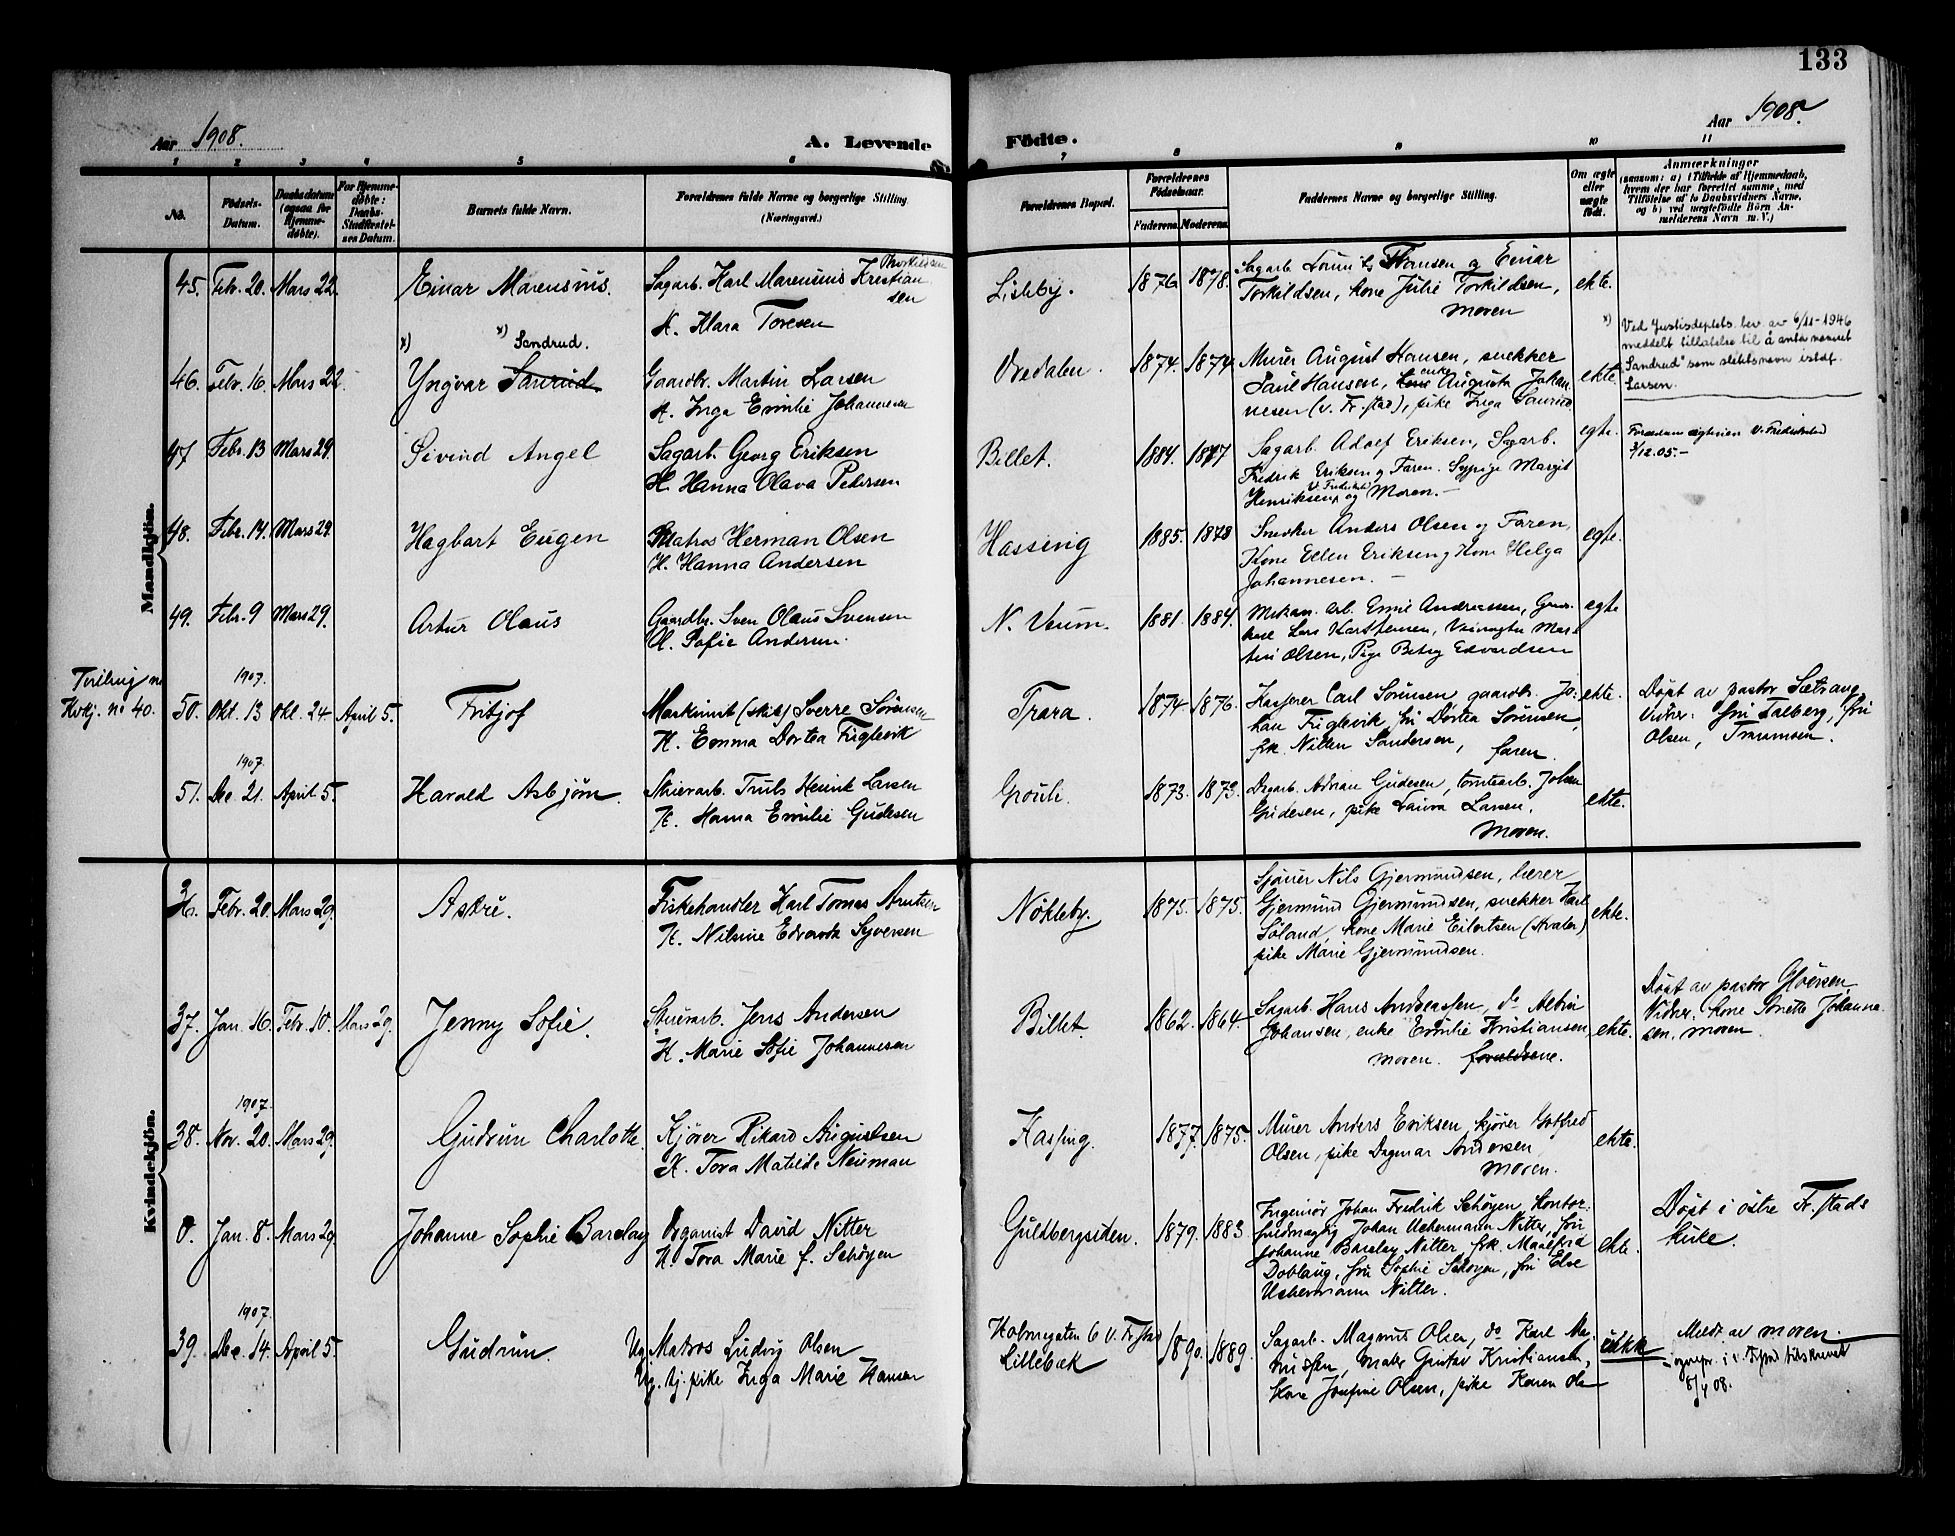 133
Aar 1908.
A. Levende
Födte.
Aar 1908.
1 2 3 4 5 6 7 8 9 10 11
No.
Födsels-
Datum.
Daabsdatum
(ogsaa for
Hjemme-
døbte).
For Hjemme-
døbte:
Daabs-
Stadfæstel-
ses Datum.
Barnets fulde Navn.
Forældrenes fulde Navne og borgerlige Stilling
(Næringsvei.)
Forældrenes Bopæl.
Forældrenes
Födselsaar.
Faderens. Moderens.
Faddernes Navne og borgerlige Stilling.
Om ægte
eller
uægte
født.
Anmærkninger
(saasom: a) i Tilfælde af Hjemmedaab,
hvem der har forrettet samme, med
Tilføielse af to Daabsvidners Navne,
og b) ved uægtefødte Börn An-
melderens Navn m. V.)
Mandkjön.
45. Febr. 20. Mars 22. Einar Marensius. Sagarb. Karl Marensius Kristian
sen
Torkildsen
K. Klara Toresen
Lisleby. 1876 1878.
Hansen og Einar
Torkildsen, kone Julie Torkildsen,
moren
ekte.
46. Febr. 16. Mars 22. x) Yngvar Saurud x) Sandrud.
Gaardbr. Martin Larsen
K. Inga Emilie Johannesen
Oredalen. 1874. 1874.
Murer August Hansen, snekker
Paul Hansen, kone enke Augusta Johan
nesen (v. Fr.stad), pike Inga Saurud.
ekte.
x) Ved Justisdeptets. bev. av 6/11-1946
meddelt tillatelse til å anta navnet
"Sandrud" som slektsnavn istdf.
Larsen.
47 Febr. 13 Mars 29. Øivind Angel
Sagarb. Georg Eriksen
H. Hanna Olava Pedersen
Billet. 1884. 1877
Sagarb. Adolf Eriksen, Sagarb.
Fredrik Eriksen og Faren. Sypige Margit
Henriksen, og Moren.-
egte.
V. Fredrikstad
3/12.05.-
48. Febr. 14. Mars 29. Hagbart Eugen
Matros Herman Olsen
H. Hanna Andersen
Hassing 1885. 1878
Snedker Anders Olsen og Faren,
Kone Ellen Eriksen og Kone Helga
Johannesen. -
egte.
49. Febr. 9 Mars 29. Artur Olaus
Gaardbr. Sven Olaus Svensen
H. Sofie Andersen.
N. Veum. 1881. 1884.
Mekan. arb. Emil Andreassen,
Lars Karstensen,
Olsen, Pige Betsy Edvardsen
egte
Tvilling m
Kvkj. nº 40.
50. 1907. Okt. 13 Okt. 24 April 5. Fritjof
Maskinist (skib) Sverre Sørensen
K. Emma Dortea Fuglevik
Trara. 1874 1876.
Kasjerer Carl Sørensen gaardbr. Jo-
han Fuglevik fru Dortea Sørensen,
frk. Nillen Sandersen, faren.
ekte.
Døpt av pastor Sætrang
Vidner: fru Talberg, fru
Olsen,
51. 1907. De. 21. April 5. Harald Asbjørn.
Stuerarb. Truls Henrik Larsen
K. Hanna Emilie Gudesen
1873. 1873.
Dagarb. Adrian Gudesen, tomtearb. Johan
Gudesen, pike Laura Larsen,
moren.
ekte.
Kvindekjön.
36. Febr. 20. Mars 29. Astri.
Fiskehandler Karl Tomas Arntsen
K. Nilsine Edvarda Syversen
Nøkleby. 1875. 1875.
Sjøuer Nils Gjermundsen, lærer
Gjermund Gjermundsen, snekker Karl
Søland, kone Marie Eilertsen (Hvaler)
pike Marie Gjermundsen.
ekte.
37. Jan. 16. Febr. 10. Mars 29. Jenny Sofie.
Stuerarb. Jens Andersen
K. Marie Sofie Johannesen
Billet 1862. 1864.
Sagarb. Hans Andreassen, do Albin
Johansen, enke Emilie Kristiansen,
moren. forældrene.
ekte.
Døpt av pastor Gløersen
Vidner. kone Sørette Johanne
sen, moren.
38. 1907. Nov. 20. Mars 29. Gudrun Charlotte
Kjører Rikard Augustsen
K. Tora Matilde Neuman
Hassing. 1877. 1875.
Murer Anders Eriksen, kjører Gotfred
Olsen, pike Dagmar Andersen,
moren.
ekte.
0. Jan. 8. Mars 29. Johanne Sophie Barclay
Organist David Nitter
K. Tora Marie f. Schøyen
Guldbergsiden. 1879. 1883.
Ingeniør Johan Fredrik Schøyen, kontor-
fuldmægtig Johan Uchermann Nitter, fru
Johanne Barclay Nitter, frk. Maalfrid
Doblaug, fru Sophie Schøyen, fru Else
Uchermann Nitter.
ekte.
Døpt i østre Fr.stads
kirke.
39. 1907. De. 14. April 5. Gudrun.
Ug. Matros Ludvig Olsen
Ug. tj. pike Inga Marie Hansen
Holmegaten 6 v. Fr.stad
Lillebæk 1890. 1889.
Sagarb. Magnus Olsen, do Karl Mag-
nussen, maler Gustav Kristiansen,
kone Josefine Olsen, pike Karen Ols
uekte
Meldt av moren.
8/4 08.